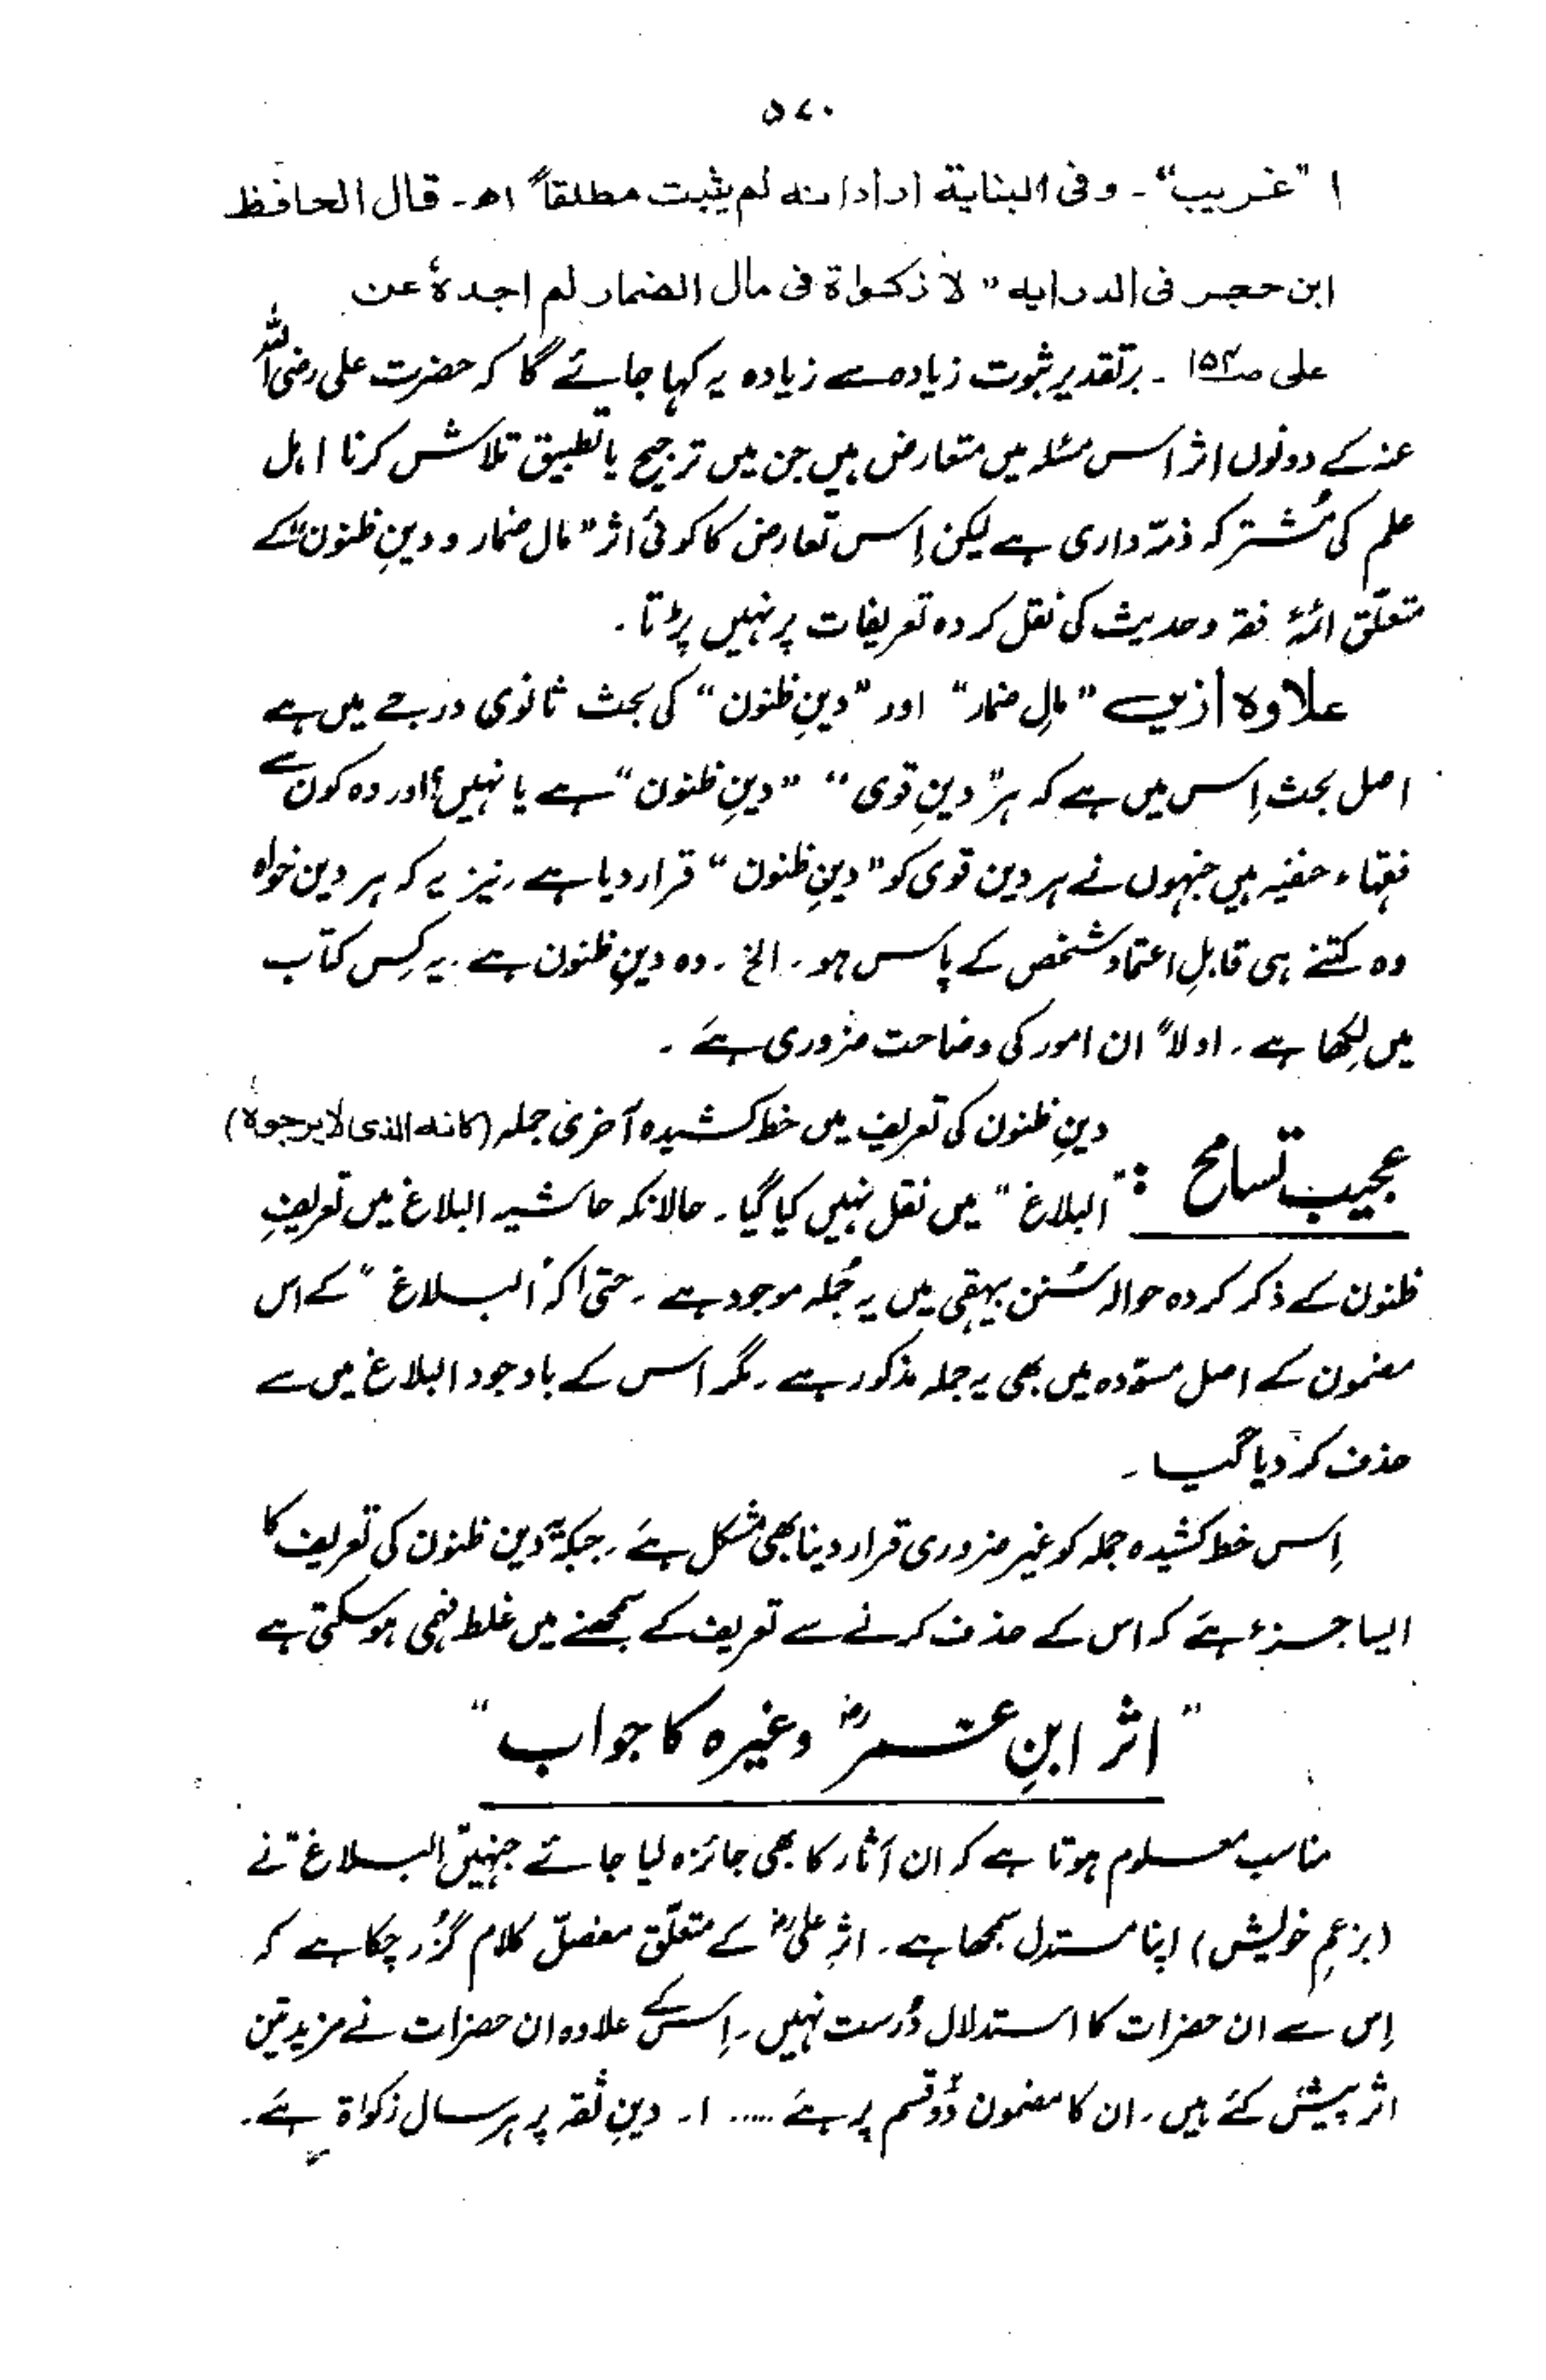 ۵۷۰
۱ "غریب"۔ وفی البنایة اراد انه لم یثبت مطلقاً اھ۔ قال الحافظ
ابن حجر فی الدرایه "لا زکواة فی مال الضمار لم اجدهٗ عن
علی صـ۱۵۴ ۔ بر تقدیر ثبوت زیادہ سے زیادہ یہ کہا جائے گا کہ حضرت علی رضی اللہ
عنہ کے دونوں اثر اس مسئلہ میں متعارض ہیں جن میں ترجیح یا تطبیق تلاش کرنا اہل
علم کی مُشترکہ ذمّہ داری ہے لیکن اِس تعارض کا کوئی اثر "مال ضمار و دینِ ظنون" کے
متعلّق ائمۂ فقہ و حدیث کی نقل کردہ تعریفات پر نہیں پڑتا ۔
علاوہ ازیں "مالِ ضمار" اور "دینِ ظنون" کی بحث ثانوی درجے میں ہے
اصل بحث اِس میں ہے کہ ہر "دینِ قوی" "دینِ ظنون" ہے یا نہیں؟ اور وہ کون سے
فقہاء حنفیہ ہیں جنہوں نے ہر دین قوی کو "دینِ ظنون" قرار دیا ہے۔ نیز یہ کہ ہر دین خواہ
وہ کتنے ہی قابلِ اعتماد شخص کے پاس ہو۔ الخ ۔ وہ دینِ ظنون ہے ۔ یہ کِس کتاب
میں لِکھا ہے ۔ اولاً ان امور کی وضاحت ضروری ہے ۔
عجیب تسامح : دینِ ظنون کی تعریف میں خط کشیدہ آخری جملہ (کانه الذی لا یرجوہ)
"البلاغ" میں نقل نہیں کیا گیا ۔ حالانکہ حاشیہ البلاغ میں تعریفِ
ظنون کے ذکر کردہ حوالہ سُنن بیہقی میں یہ جُملہ موجود ہے ۔ حتیٰ کہ "البلاغ" کے اس
مضمون کے اصل مسوّدہ میں بھی یہ جملہ مذکور ہے ۔ مگر اس کے باوجود البلاغ میں سے
حذف کر دیا گیا ۔
اِس خط کشیدہ جملہ کو غیر ضروری قرار دینا بھی مشکل ہے ۔ جبکہ یہ دین ظنون کی تعریف کا
ایسا جزء ہے کہ اس کے حذف کرنے سے تعریف کے سمجھنے میں غلط فہمی ہو سکتی ہے
"اثر ابنِ عمرؓ وغیرہ کا جواب"
مناسب معلوم ہوتا ہے کہ ان آثار کا بھی جائزہ لیا جائے جنہیں "البلاغ" نے
(بزعمِ خویش) اپنا مستدل سمجھا ہے ۔ اثرِ علیؓ کے متعلّق مفصلّ کلام گزُر چکا ہے کہ
اِس سے ان حضرات کا استدلال دُرست نہیں ۔ اِس کے علاوہ ان حضرات نے مزید تین
اثر پیش کئے ہیں ۔ ان کا مضمون دُو قسم پر ہے ..... ۱۔ دینِ ثقہ پر ہر سال زکواة ہے ۔